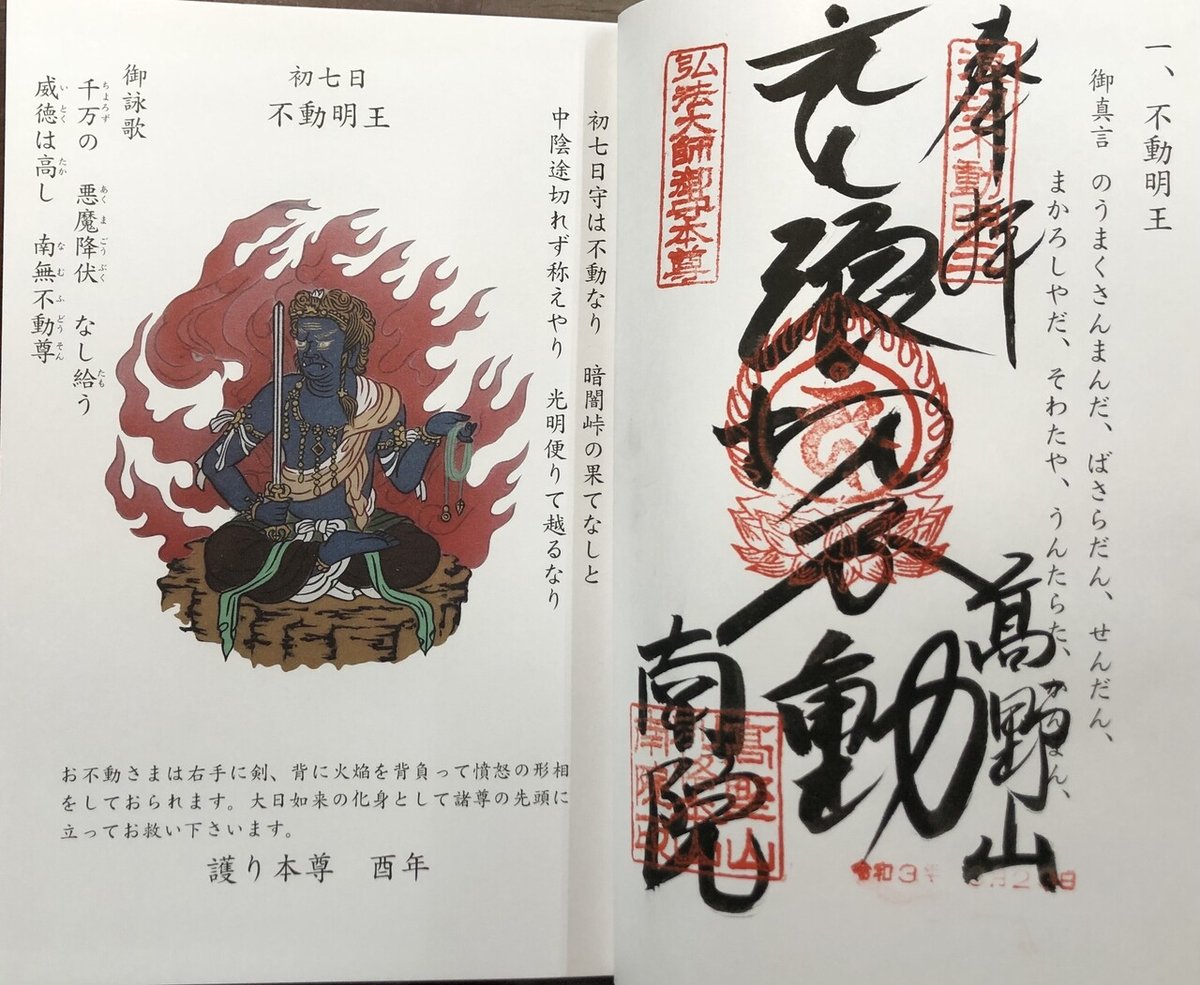 一、不動明王
御真言 のうまくさんまんだ、ばさらだん、せんだん、
まかろしやだ、そわたや、うんたらた、かんまん、
奉拝
浪切不動明王
髙野山
浪切不動
弘法大師御守本尊
南院
高野山
令和3年
初七日守は不動なり 暗闇峠の果てなしと
中陰途切れず称えやり 光明便りて越るなり
初七日
不動明王
御詠歌
千万の 悪魔降伏 なし給う
威徳は高し 南無不動尊
お不動さまは右手に剣、背に火焔を背負って憤怒の形相
をしておられます。大日如来の化身として諸尊の先頭に
立ってお救い下さいます。
護り本尊 酉年